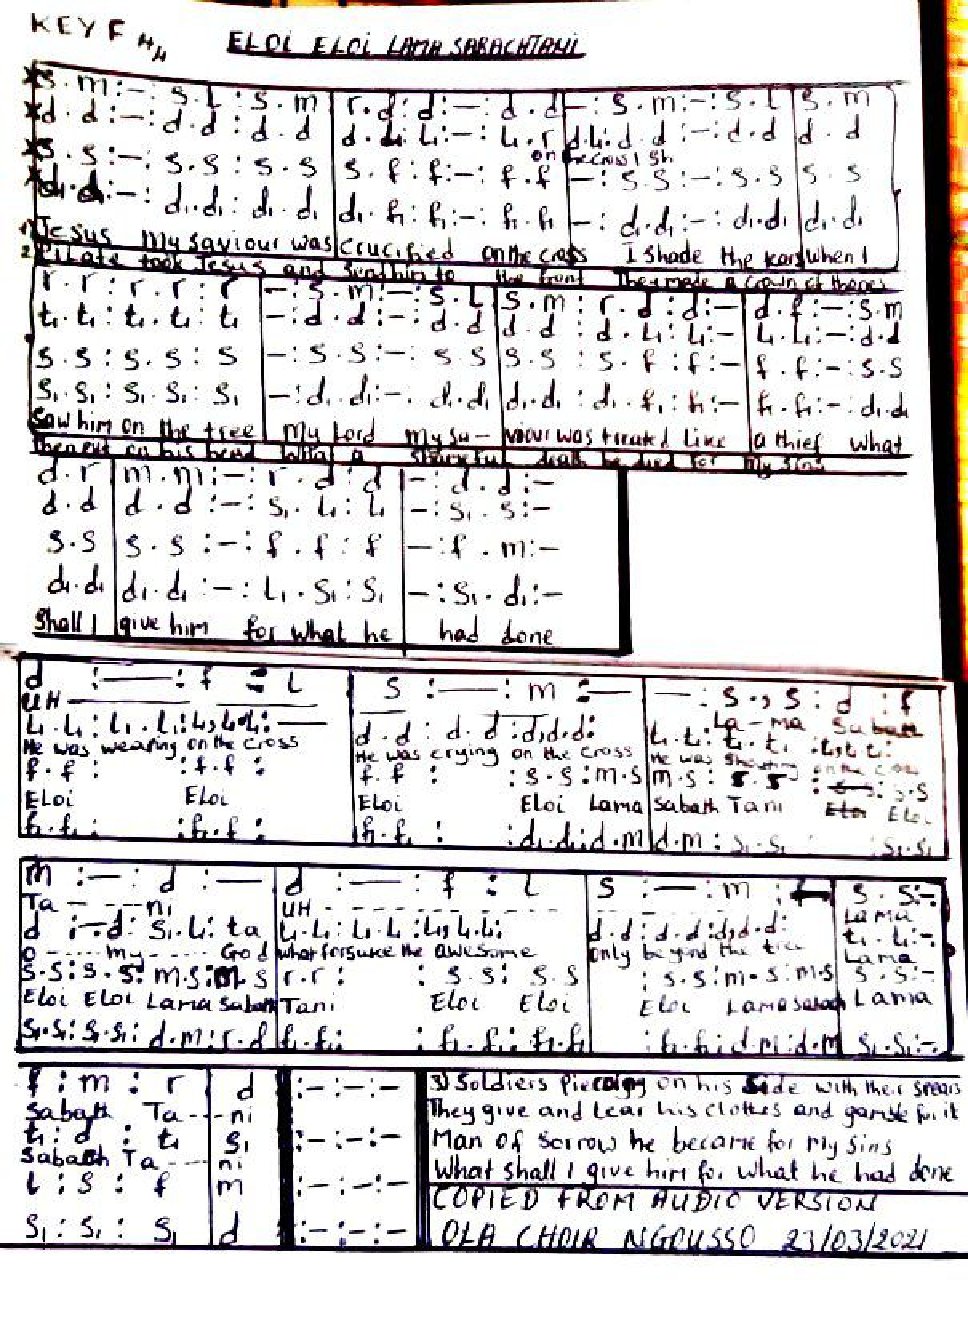 KEY F 4/4
ELOI ELOI LAMA SABACHTANI
s . m : - : s . l : s . m | r . d : d : - : d . d | - : s . m : - : s . l | s . m
d . d : - : d . d : d . d | d . l₁ : l₁ : - : l₁ . r | d . l₁ : d . d : - : d . d | d . d
on the cross I sh
s . s : - : s . s : s . s | s . f : f : - : f . f | - : s . s : - : s . s | s . s
d₁ . d₁ : - : d₁ . d₁ : d₁ . d₁ | d₁ . f₁ : f₁ : - : f₁ . f₁ | - : d₁ . d₁ : - : d₁ . d₁ | d₁ . d₁
1) Jesus my saviour was crucified on the cross I shade the tears when I
2 Pilate took Jesus and send him to the front They made a crown of thorns
r . r : r . r : r | - : s . m : - : s . l | s . m : r . d : d : - | d . f : - : s . m
t₁ . t₁ : t₁ . t₁ : t₁ | - : d . d : - : d . d | d . d : d . l₁ : l₁ : - | l₁ . l₁ : - : d . d
s . s : s . s : s | - : s . s : - : s s | s . s : s . f : f : - | f . f : - : s . s
s₁ . s₁ : s₁ . s₁ : s₁ | - : d₁ . d₁ : - : d₁ . d₁ | d₁ . d₁ : d₁ . f₁ : f₁ : - | f₁ . f₁ : - : d₁ . d₁
Saw him on the tree My Lord My sa - viour was treated like a thief what
then put on his head What a shameful death he died for my sins
d . r | m . m : - : r . d : d | - : d . d : -
d . d | d . d : - : s₁ . l₁ : l₁ | - : s₁ . s : -
s . s | s . s : - : f . f : f | - : f . m : -
d₁ . d₁ | d₁ . d₁ : - : l₁ . s₁ : s₁ | - : s₁ . d₁ : -
Shall I give him for what he had done
d : — : f : l | s : — : m : — | — : s . , s : d : f
UH La - ma Sabath
l₁ . l₁ : l₁ . l₁ : l₁ , l₁ . l₁ : — | d . d : d . d : d , d . d : | t₁ . t₁ : t₁ . t₁ : t₁ t₁ t₁ :
He was weaping on the cross He was crying on the cross He was shouting on the cross
f . f : : f . f : | f . f : : s . s : m . s | m . s : s . s : s . s
Eloi Eloi Eloi Eloi Lama Sabath Tani Eloi Eloi
f₁ . f₁ : : f₁ . f₁ : | f₁ . f₁ : : d₁ . d₁ : d . m | d . m : s₁ . s₁ : s₁ . s₁
m : — : d : — | d : — : f : l | s : — : m : | s . s : -
Ta - - - - ni UH - - - - Lama
d : - . d : s₁ . l₁ : ta | l₁ . l₁ : l₁ . l₁ : l₁ , l₁ . l₁ : | d . d : d . d : d , d . d : | t₁ . l₁ : -
O - - - - - my - - - - - God what forsake the awesome only beyond the tree Lama
s . s : s . s : m . s : m . s | r . r : : s . s : s . s | : s . s : m . s : m . s | s . s : -
Eloi Eloi Lama Sabath Tani Eloi Eloi Eloi Lama Sabath Lama
s₁ . s₁ : s₁ . s₁ : d . m : r . d | f₁ . f₁ : : f₁ . f₁ : f₁ . f₁ | : f₁ . f₁ : d . m : d . m | s₁ . s₁ : -
f : m : r | d | : - : - : -
Sabath Ta - - - ni
t₁ : d : t₁ | s₁ | : - : - : -
Sabath Ta - - - ni
l : s : f | m | : - : - : -
s₁ : s₁ : s₁ | d | : - : - : -
3) Soldiers Piercing on his Side with their spears
They give and tear his clothes and gamble for it
Man of sorrow he became for my sins
What shall I give him for what he had done
COPIED FROM AUDIO VERSION
OLA CHOIR NGOUSSO 23/03/2021